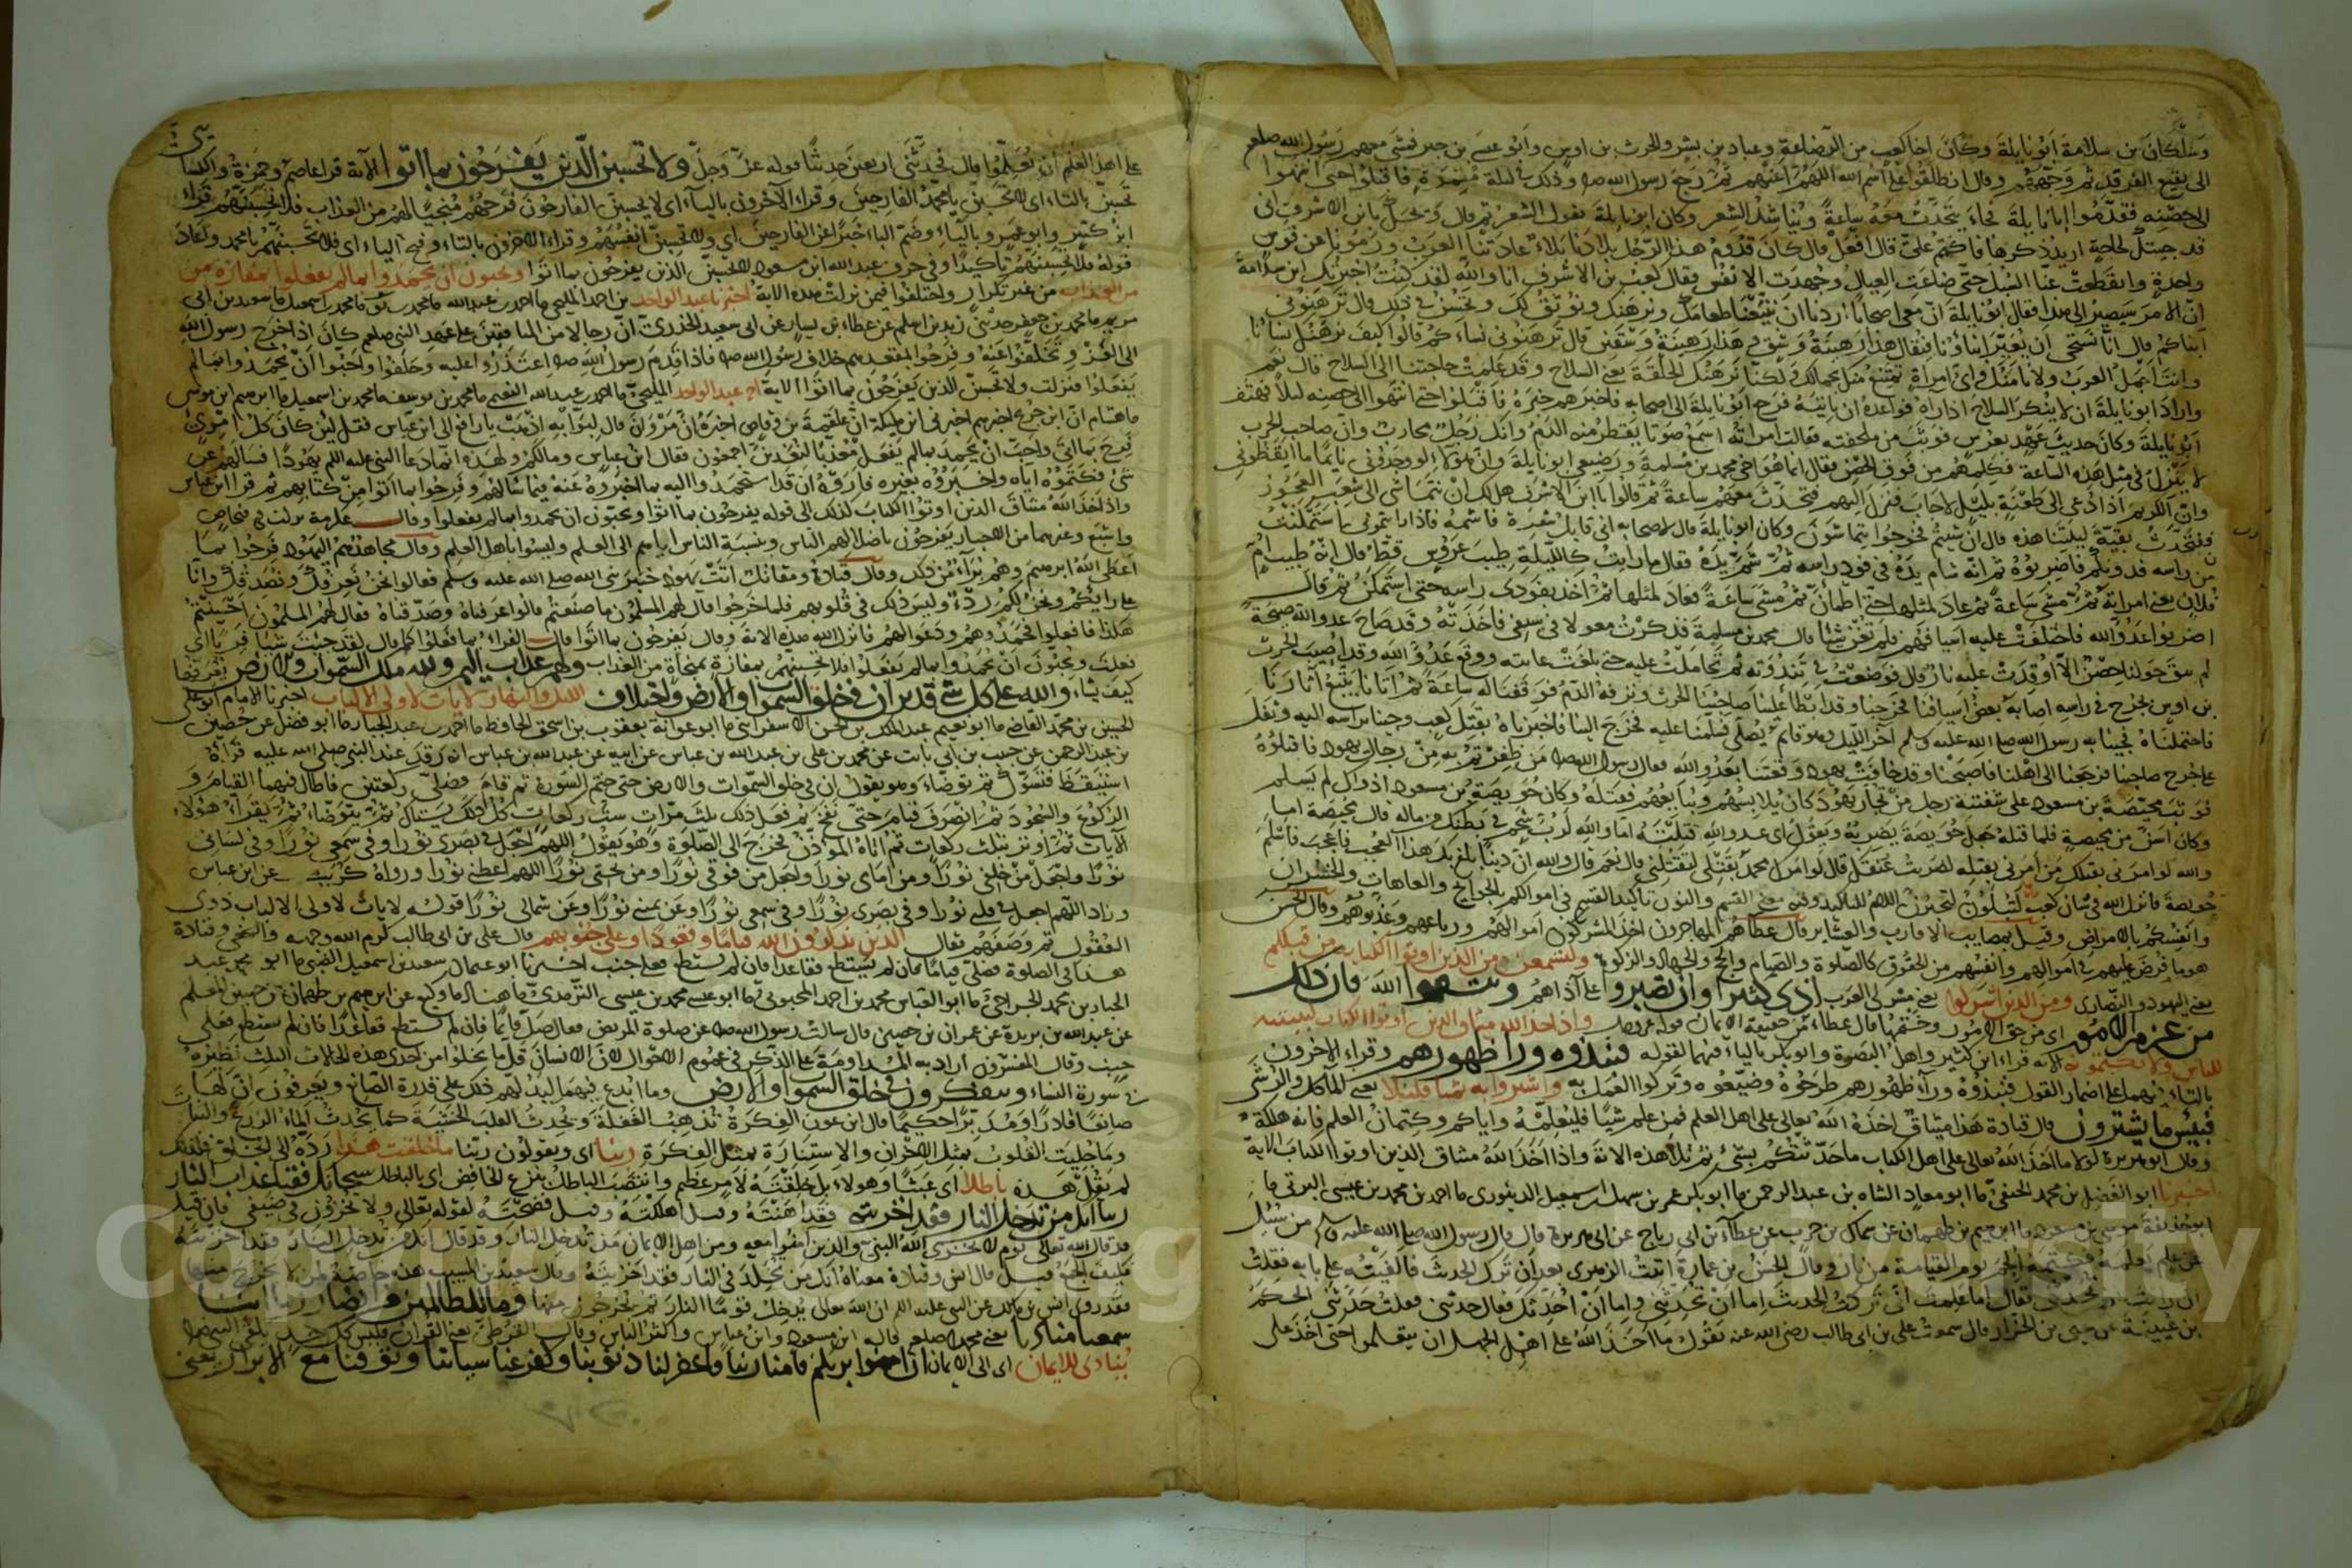 وسلكان بن سلامة ابو نايلة وكان اخا كعب من الرضاعة وعباد بن بشر والحرث بن اوس وابو عبس بن جبر فمشى معهم رسول الله صلعم
الى بقيع الغرقد ثم وجههم وقال انطلقوا على اسم الله اللهم اعنهم ثم رجع رسول الله صلع وذلك في ليلة مقمرة فاقبلوا حتى انتهوا
الى حصنه فقدموا ابا نايلة فجاءه يتحدث معه ساعة ويناشد الشعر وكان ابو نايلة يقول الشعر ثم قال ويحك يا بن الاشرف انى
قد جيتك لحاجة اريد ذكرها فاكتم على قال افعل قال كان قدوم هذا الرجل بلادنا بلاء عادتنا العرب ورمونا عن قوس
واحدة وانقطعت عنا السبل حتى ضاعت العيال وجهدت الانفس فقال كعب بن الاشرف انا والله لقد كنت اخبرتك ابن سلامة
ان الامر سيصير الى هذا فقال ابو نايلة ان معى اصحابا اردنا ان تبيعنا طعامك ونرهنك ونوثق لك وتحسن في ذلك قال ترهنونى
ابناكم قال انا نستحي ان يعير ابناؤنا فيقال هذا رهينة وسق وهذا رهينة وسقين قال ترهنونى نساءكم قالوا كيف نرهنك نسانا
وانت اجمل العرب ولا نامنك واى امراة تمتنع منك لجمالك ولكنا نرهنك الحلقة يعنى السلاح وقد علمت حاجتنا الى السلاح قال نعم
واراد ابو نايلة ان لا ينكر السلاح اذا راه فواعده ان ياتيه فرجع ابو نايلة الى اصحابه فاخبرهم خبره فاقبلوا حتى انتهوا الى حصنه ليلا فهتف
ابو نايلة وكان حديث عهد بعرس فوثب من ملحفته فقالت امراته اسمع صوتا يقطر منه الدم وانك رجل محارب وان صاحب الحرب
لا ينزل في مثل هذه الساعة فكلمهم من فوق الحصن فقال انما هو اخي محمد بن مسلمة ورضيعى ابو نايلة وان هولاء لو وجدونى نايما ما ايقظونى
وان الكريم اذا دعى الى طعنة بليل لاجاب فنزل اليهم فتحدث معهم ساعة ثم قالوا يا ابن الاشرف هل لك ان نتماشى الى شعب العجوز
فنتحدث بقية ليلتنا هذه قال ان شيتم فخرجوا يتماشون وكان ابو نايلة قال لاصحابه انى قايل شعره فاشمه فاذا رايتمونى استمكنت
من راسه فدونكم فاضربوه ثم انه شام يده في فود راسه ثم شم يده فقال ما رايت كالليلة طيب عروس قط قال انه طيب ام
فلان يعنى امراته ثم مشى ساعة ثم عاد لمثلها حتى اطمان ثم مشى ساعة فعاد لمثلها ثم اخذ بفودى راسه حتى استمكن ثم قال
اضربوا عدو الله فاختلفت عليه اسيافهم فلم تغن شيئا قال محمد بن مسلمة فذكرت مغولا في سيفى فاخذته وقد صاح عدو الله صيحة
لم يبق حولنا حصن الا اوقدت عليه نار قال فوضعته في ثندوته ثم تحاملت عليه حتى بلغت عانته ووقع عدو الله وقد اصيب الحرث
بن اوس بجرح في راسه اصابه بعض اسيافنا فخرجنا وقد ابطا علينا صاحبنا الحرث ونزفه الدم فوقفنا له ساعة ثم اتانا يتبع آثارنا
فاحتملناه فجينا به رسول الله صلى الله عليه وسلم آخر الليل وهو قايم يصلى فسلمنا عليه فخرج الينا فاخبرناه بقتل كعب وجينا براسه اليه وتفل
على جرح صاحبنا فرجعنا الى اهلنا فاصبحنا وقد خافت يهود وقعتنا بعدو الله فقال رسول الله صلع من ظفرتم به من رجال يهود فاقتلوه
فوثب محيصة بن مسعود على سنينة رجل من تجار يهود كان يلابسهم ويبايعهم فقتله وكان حويصة بن مسعود اذ ذاك لم يسلم
وكان اسن من محيصة فلما قتله جعل حويصة يضربه ويقول اى عدو الله قتلته اما والله لرب شحم في بطنك من ماله قال محيصة اما
والله لو امرنى بقتلك من امرنى بقتله لضربت عنقك قال لو امرك محمد بقتلى لقتلتنى قال نعم قال والله ان دينا بلغ بك هذا العجب فاسلم
حويصة فانزل الله في شان كعب لتبلون لتختبرن اللام للتاكيد وفيه معنى القسم والنون تاكيد القسم في اموالكم بالجوايح والعاهات والخسران
وانفسكم بالامراض وقيل بمصايب الاقارب والعشاير قال عطا هم المهاجرون اخذ المشركون اموالهم ورباعهم وعذبوهم وقال الحسن
هو ما فرض عليهم في اموالهم وانفسهم من الحقوق كالصلوة والصيام والحج والجهاد والزكوة ولتسمعن من الذين اوتوا الكتاب من قبلكم
يعنى اليهود والنصارى ومن الذين اشركوا يعنى مشركى العرب اذى كثيرا وان تصبروا على آذاهم وتتقوا الله فان ذلك
من عزم الامور اى من حق الامور وحتمها قال عطاء من حقيقة الايمان قوله عز وجل واذ اخذ الله ميثاق الذين اوتوا الكتاب ليبيننه
للناس ولا يكتمونه الآية قراء ابن كثير واهل البصرة وابو بكر بالياء فيهما لقوله فنبذوه وراء ظهورهم وقراء الاخرون
بالتاء فيهما على اضمار القول فنبذوه وراء ظهورهم طرحوه وضيعوه وتركوا العمل به واشتروا به ثمنا قليلا يعنى المآكل والرشى
فبئس ما يشترون قال قتادة هذا ميثاق اخذه الله تعالى على اهل العلم فمن علم شيئا فليعلمه واياكم وكتمان العلم فانه هلكة
وقال ابو هريرة لولا ما اخذ الله تعالى على اهل الكتاب ما حدثتكم بشئ ثم تلا هذه الاية واذا اخذ الله ميثاق الذين اوتوا الكتاب الاية
اخبرنا ابو الفضل بن محمد الحنفى ما ابو معاد الشاه بن عبد الرحمن ما ابو بكر عمر بن سهل بن اسمعيل الدينورى ما احمد بن محمد بن عيسى البرتى ما
ابو حذيفة موسى بن مسعود ما ابراهيم بن طهمان عن سماك بن حرب عن عطاء بن ابى رباح عن ابى هريرة قال قال رسول الله صلى الله عليه وسلم من سئل
عن علم يعلمه فكتمه الجم يوم القيامة من نار وقال الحسن بن عمارة اتيت الزهرى بعد ان ترك الحديث فالفيته على بابه فقلت
ان رايت ان تحدثنى فقال اما علمت انى تركت الحديث اما ان تحدثنى واما ان احدثك فقال حدثنى فقلت حدثنى الحكم
بن عيينة عن يحيى بن الجزار قال سمعت على بن ابى طالب رضى الله عنه يقول ما اخذ الله على اهل الجهل ان يتعلموا حتى اخذ على
على اهل العلم ان يعلموا قال فحدثنى اربعين حديثا قوله عز وجل ولا تحسبن الذين يفرحون بما اتوا الآية قرا عاصم وحمزة والكسا
تحسبن بالتاء اى لا تحسبن يا محمد الفارحين وقراء الآخرون بالياء اى لا يحسبن الفارحون فرحهم منجيا لهم من العذاب فلا تحسبنهم قراء
ابن كثير وابو عمرو بالياء وضم الباء خبرا عن الفارحين اى ولا تحسبن انفسهم وقراء الآخرون بالتاء وفتح الباء اى فلا تحسبنهم يا محمد واعاد
قوله فلا تحسبنهم تاكيدا وفي حرف عبد الله ابن مسعود لا تحسبن الذين يفرحون بما اتوا ويحبون ان يحمدوا بما لم يفعلوا بمفازة من
من العذاب من غير تكرار واختلفوا فيمن نزلت هذه الاية اخبرنا عبد الواحد بن احمد المليحى ما احمد بن عبد الله ما محمد بن يوسف ما محمد بن اسمعيل ما سعيد بن ابى
مريم ما محمد بن جعفر حدثنى زيد بن اسلم عن عطاء بن يسار عن ابى سعيد الخدرى ان رجالا من المنافقين على عهد النبي صلعم كان اذا خرج رسول الله
الى الغزو تخلفوا عنه وفرحوا بمقعدهم خلاف رسول الله صلع فاذا قدم رسول الله صلع اعتذروا اليه وحلفوا واحبوا ان يحمدوا بما لم
يفعلوا فنزلت ولا تحسبن الذين يفرحون بما اتوا الاية اخ عبد الواحد المليحى ما احمد بن عبد الله النعيمى ما محمد بن يوسف ما محمد بن اسمعيل ما ابراهيم ابن موسى
ما هشام ان ابن جريج اخبرهم اخبرنى ابن مليكة ان علقمة بن وقاص اخبره ان مروان قال لبوابه اذهب يا رافع الى ابن عباس فقل لئن كان كل امرئ
فرح بما اتى واحب ان يحمد بما لم يفعل معذبا لنعذبن اجمعون فقال ابن عباس ومالكم ولهذه انما دعا النبى عليه السلم يهودا فسالهم عن
شئ فكتموه اياه واخبروه بغيره فاروه ان قد استحمدوا اليه بما اخبروه عنه فيما سالهم وفرحوا بما اتوا من كتابهم ثم قرا ابن عباس
واذ اخذ الله ميثاق الذين اوتوا الكتاب كذلك الى قوله يفرحون بما اتوا ويحبون ان يحمدوا بما لم يفعلوا وقال عكرمة نزلت في فنحاص
واشيع وغيرهما من الاحبار يفرحون باضلالهم الناس وبنسبة الناس اياهم الى العلم وليسوا باهل العلم وقال مجاهد هم اليهود فرحوا بما
اعطى الله ابراهيم وهم برآء من ذلك وقال قتادة ومقاتل اتت يهود خيبر نبى الله صلى الله عليه وسلم فقالوا نحن نعرفك ونصدقك وانا
على رايكم ونحن لكم ردء وليس ذلك في قلوبهم فلما خرجوا قال لهم المسلمون ما صنعتم قالوا عرفناه وصدقناه فقال لهم المسلمون احسنتم
هكذا فافعلوا فحمدوهم ودعوا لهم فانزل الله هذه الاية وقال يفرحون بما اتوا قال الفراء بما فعلوا كما قال لقد جئت شيئا فريا اى
فعلت ويحبون ان يحمدوا بما لم يفعلوا فلا تحسبنهم بمفازة بمنجاة من العذاب ولهم عذاب اليم ولله ملك السموات والارض يصرفها
كيف يشاء والله على كل شئ قدير ان في خلق السموات والارض واختلاف الليل والنهار لايات لاولى الالباب اخبرنا الامام ابو على
الحسين بن محمد القاضى ما ابو نعيم عبد الملك بن الحسن الاسفراينى ما ابو عوانة يعقوب بن اسحق الحافظ ما احمد بن عبد الجبار ما ابو فضل عن حصين
بن عبد الرحمن عن حبيب بن ابى ثابت عن محمد بن على بن عبد الله بن عباس عن ابيه عن عبد الله بن عباس انه رقد عند النبى صلى الله عليه فرآه
استيقظ فتسوك ثم توضاء وهو يقول ان في خلق السموات والارض حتى ختم السورة ثم قام فصلى ركعتين فاطال فيهما القيام و
الركوع والسجود ثم انصرف فنام حتى نفخ ثم فعل ذلك ثلث مرات ست ركعات كل ذلك يستاك ثم يتوضاء ثم يقراء هؤلاء
الآيات ثم اوتر بثلث ركعات ثم اتاه المؤذن فخرج الى الصلوة وهو يقول اللهم اجعل في بصرى نورا وفي سمعى نورا وفي لسانى
نورا واجعل من خلفى نورا ومن امامى نورا واجعل من فوقى نورا ومن تحتى نورا اللهم اعطنى نورا ورواه كريب عن ابن عباس
وزاد اللهم اجعل في قلبى نورا وفي بصرى نورا وفي سمعى نورا وعن يمينى نورا وعن شمالى نورا قوله لايات لاولى الالباب ذوى
العقول ثم وصفهم فقال الذين يذكرون الله قياما وقعودا وعلى جنوبهم قال على بن ابى طالب كرم الله وجهه والنخعى وقتادة
هذا في الصلوة يصلى قياما فان لم يستطع فقاعدا فان لم يستطع فعلى جنب اخبرنا ابو عثمان سعيد بن اسمعيل الضبى ما ابو محمد عبد
الجبار بن محمد الجراحى ما ابو العباس محمد بن احمد المحبوبى ما ابو عيسى محمد بن عيسى الترمذى ما هناد ما وكيع عن ابراهيم بن طهمان عن حسين المعلم
عن عبد الله بن بريدة عن عمران بن حصين قال سالت رسول الله صلع عن صلوة المريض فقال صل قايما فان لم تستطع فقاعدا فان لم تستطع فعلى
جنب وقال المفسرون اراد به المداومة على الذكر في عموم الاحوال لان الانسان قل ما يخلوا من احدى هذه الحالات الثلث نظيره
في سورة النساء ويتفكرون في خلق السموات والارض وما ابدع فيهما ليدلهم ذلك على قدرة الصانع ويعرفون ان لها
صانعا قادرا ومدبرا حكيما قال ابن عون الفكرة تذهب الغفلة وتحدث للقلب الخشية كما يحدث الماء الزرع والنبات
وما جليت القلوب بمثل الاحزان والاستنارة بمثل الفكرة ربنا اى ويقولون ربنا ما خلقت هذا رده الى الخلق فلذلك
لم يقل هذه باطلا اى عبثا وهولاء بل خلقته لامر عظيم وانتصب الباطل بنزع الخافض اى بالباطل سبحانك فقنا عذاب النار
ربنا انك من تدخل النار فقد اخزيته فقد اهنته وقيل اهلكته وقيل فضحته لقوله تعالى ولا تخزون في ضيفى فان قيل
قد قال الله تعالى يوم لا يخزى الله النبى والذين امنوا معه ومن اهل الايمان من تدخل النار وقد قال انك من تدخل النار فقد اخزيته
فكيف الجمع قيل قال انس وقتادة معناه انك من تخلد في النار فقد اخزيته وقال سعيد بن المسيب هذه خاصة لمن لا يخرج منها
فقد روى انس بن مالك عن النبى عليه السلم ان الله تعالى يدخل قوما النار ثم يخرجون منها وما للظالمين من انصار ربنا اننا
سمعنا مناديا يعنى محمدا صلعم قاله ابن مسعود وابن عباس واكثر الناس وقال القرظى يعنى القرآن فليس كل احد يلقى النبى صلع
ينادى للايمان اى الى الايمان ان امنوا بربكم فامنا ربنا فاغفر لنا ذنوبنا وكفر عنا سياتنا وتوفنا مع الابرار يعنى